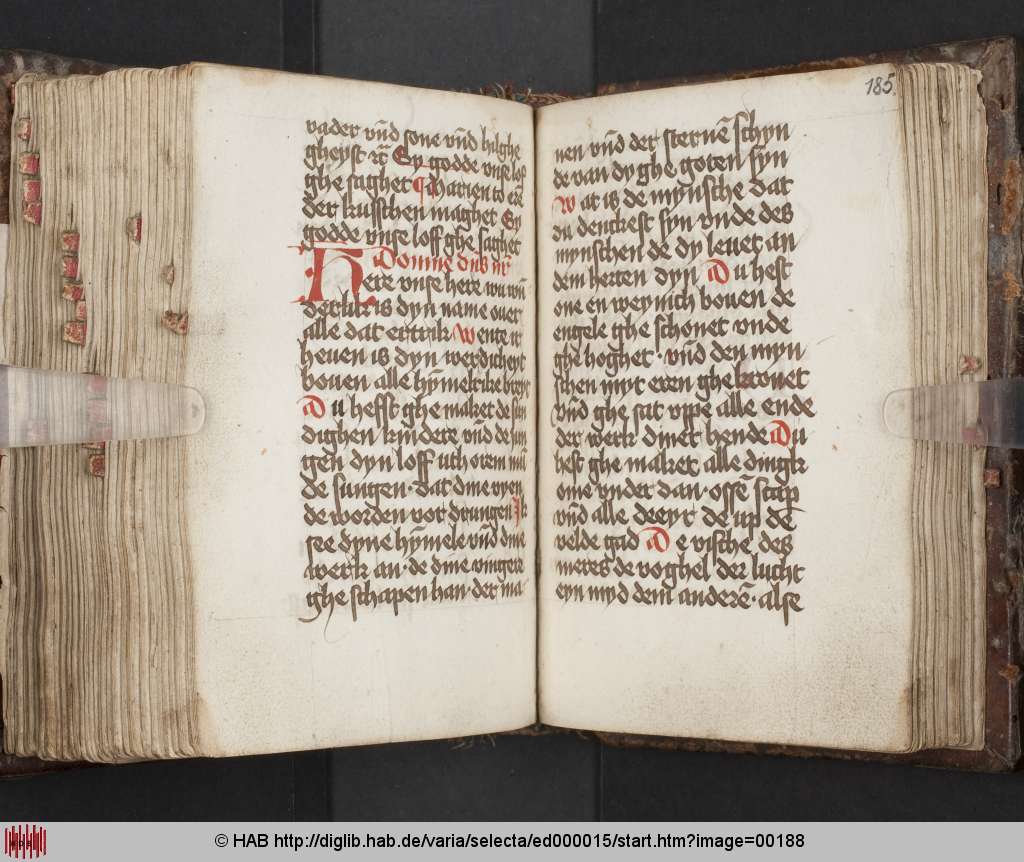 vader vn̄d sone vn̄d hilghe
gheyst ꝛc̄ Ey godde vnse lof
ghe saghet Marien to erē
der kusschen maghet Ey
godde vnse loff ghe saghet
Domine dn̄s nr̄
Here vnse here wu wū
derlik is dyn name ouer
alle dat ertrik Wente it
heuen is dyn werdicheyt
bouen alle hȳmelrike breyt
Du hefft ghe maket de sun
dighen kindere vn̄d de sun
gen dyn loff uth orem mū
de sungen · dat dine vyen
de worden vordrungen Ik
see dyne hȳmele vn̄d dine
werk an · de dine vingere
ghe schapen han · der ma
185
nen vn̄d der sternē schyn
de van dy ghe goten syn
Wat is de mynsche dat
du denckest syn vnde des
mynschen de dy leuet an
dem herten dyn Du hest
one en weynich bouen de
engele ghe schonet vnde
ghe hoghet · vn̄d den myn
schen myt eren ghe kronet
vn̄d ghe sat vppe alle ende
der werk diner hende Du
hest ghe maket alle dingk
ome vnder dan · ossē scap
vn̄d alle deeyr de up dē
velde gad De vische des
meres de voghel der lucht
eyn myd dem anderē · alse
© HAB http://diglib.hab.de/varia/selecta/ed000015/start.htm?image=00188